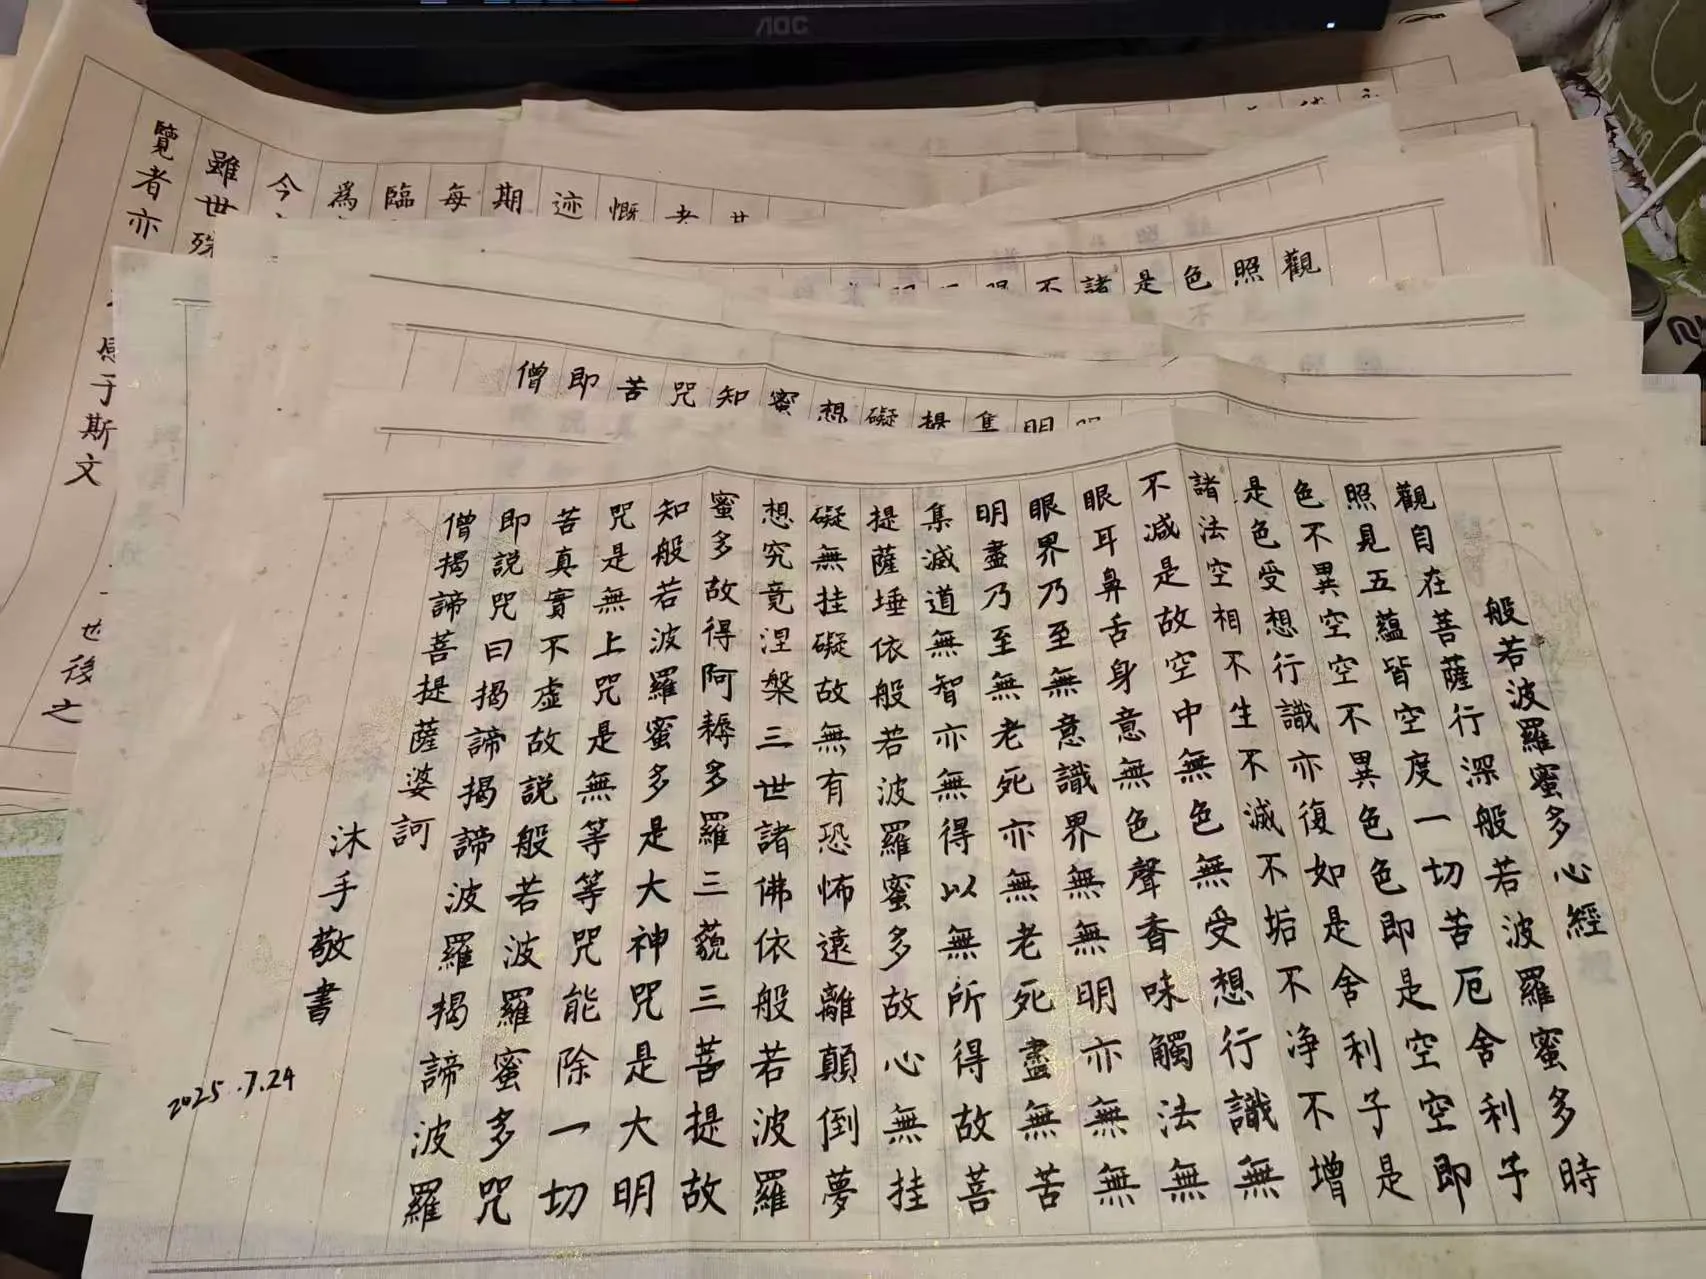 AOC
觀
照
色
是
諸
不
期
每
臨
為
今
雖世殊
覽者亦
于斯文
也後之
集
提
礙
想
蜜
知
咒
苦
即
僧
般若波羅蜜多心經
觀自在菩薩行深般若波羅蜜多時
照見五蘊皆空度一切苦厄舍利子
色不異空空不異色色即是空空即
是色受想行識亦復如是舍利子是
諸法空相不生不滅不垢不净不增
不減是故空中無色無受想行識無
眼耳鼻舌身意無色聲香味觸法無
眼界乃至無意識界無無明亦無無
明盡乃至無老死亦無老死盡無苦
集滅道無智亦無得以無所得故菩
提薩埵依般若波羅蜜多故心無挂
礙無挂礙故無有恐怖遠離顛倒夢
想究竟涅槃三世諸佛依般若波羅
蜜多故得阿耨多羅三藐三菩提故
知般若波羅蜜多是大神咒是大明
咒是無上咒是無等等咒能除一切
苦真實不虚故説般若波羅蜜多咒
即説咒曰揭諦揭諦波羅揭諦波羅
僧揭諦菩提薩婆訶
沐手敬書
2025.7.24